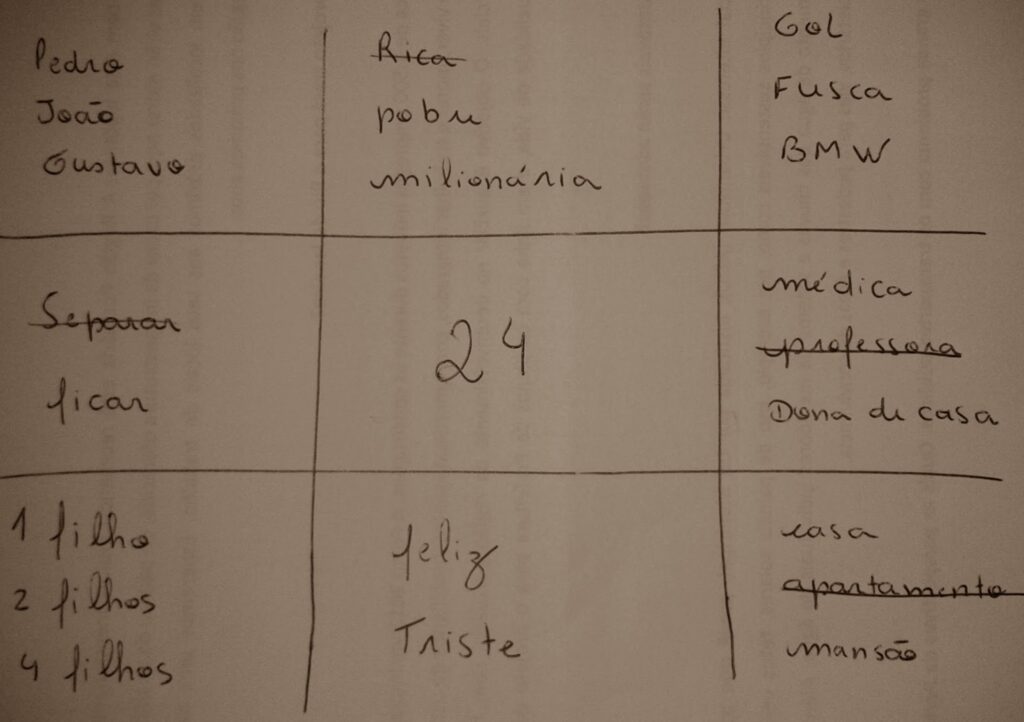 Pedro
João
Gustavo
Rica
pobre
milionária
GOL
FUSCA
BMW
Separar
ficar
24
médica
professora
Dona de casa
1 filho
2 filhos
4 filhos
feliz
Triste
casa
apartamento
mansão